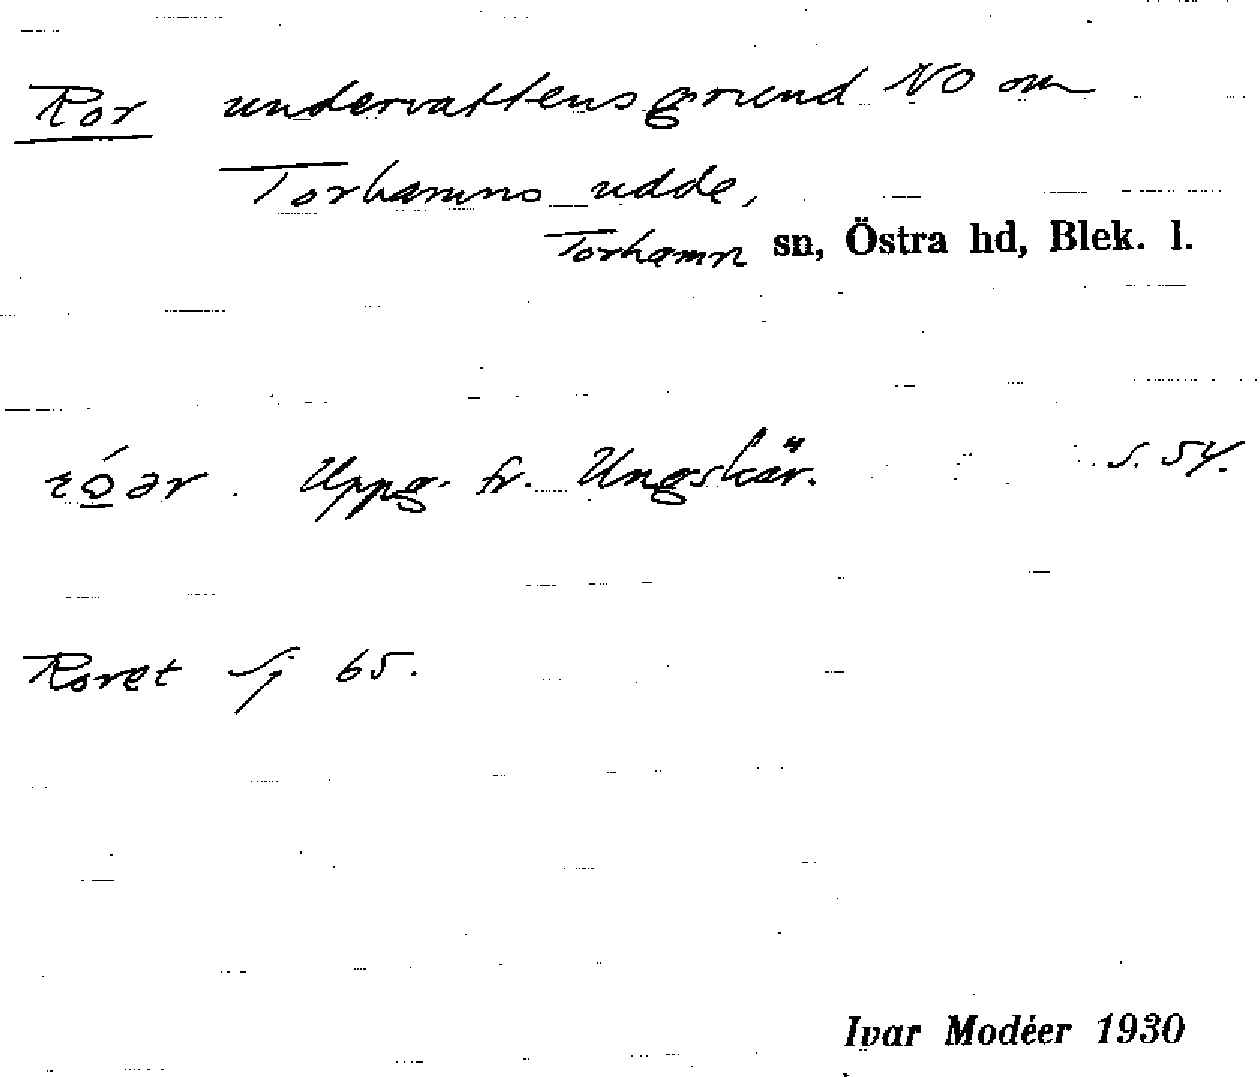 Ror undervattensgrund NO om
Torhamns udde,
Torhamn sn, Östra hd, Blek. l.
Uppg. fr. Ungskär. S. 54.
Roret Sj 65.
Ivar Modéer 1930